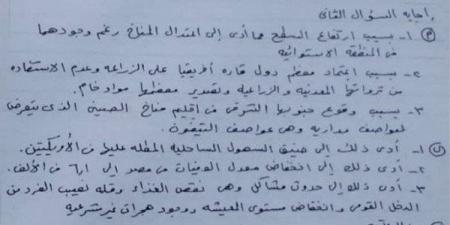 إجابه السؤال الثانى
(٢) ١- بسبب ارتفاع السطح مما أدى إلى اعتدال المناخ رغم وجودهما
فى المنطقه الاستوائيه
٢- بسبب اعتماد معظم دول قاره أفريقيا على الزراعه وعدم الاستفاده
من ثرواتها المعدنيه والزراعيه وتصدير معظمها مواد خام.
٣- بسبب وقوع جنوبها الشرقى فى إقليم مناخ الصين الذى يتعرض
لعواصف مداريه وهى عواصف التيفون.
١- أدى ذلك إلى ضيق السهول الساحليه المطله عليها فى الأمريكتين.
٢- أدى ذلك إلى انخفاض معدل الوفيات فى مصر إلى ٦,١ فى الألف.
٣- أدى ذلك إلى حدوث مشاكل وهى نقص الغذاء وقله نصيب الفرد من
الدخل القومى وانخفاض مستوى المعيشه ووجود هجرات غير شرعيه